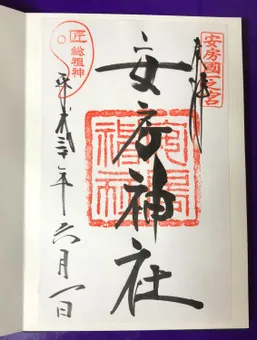 安房國一之宮
奉拝
安房神社
安房神社
匠 総祖神
平成三十年六月一日